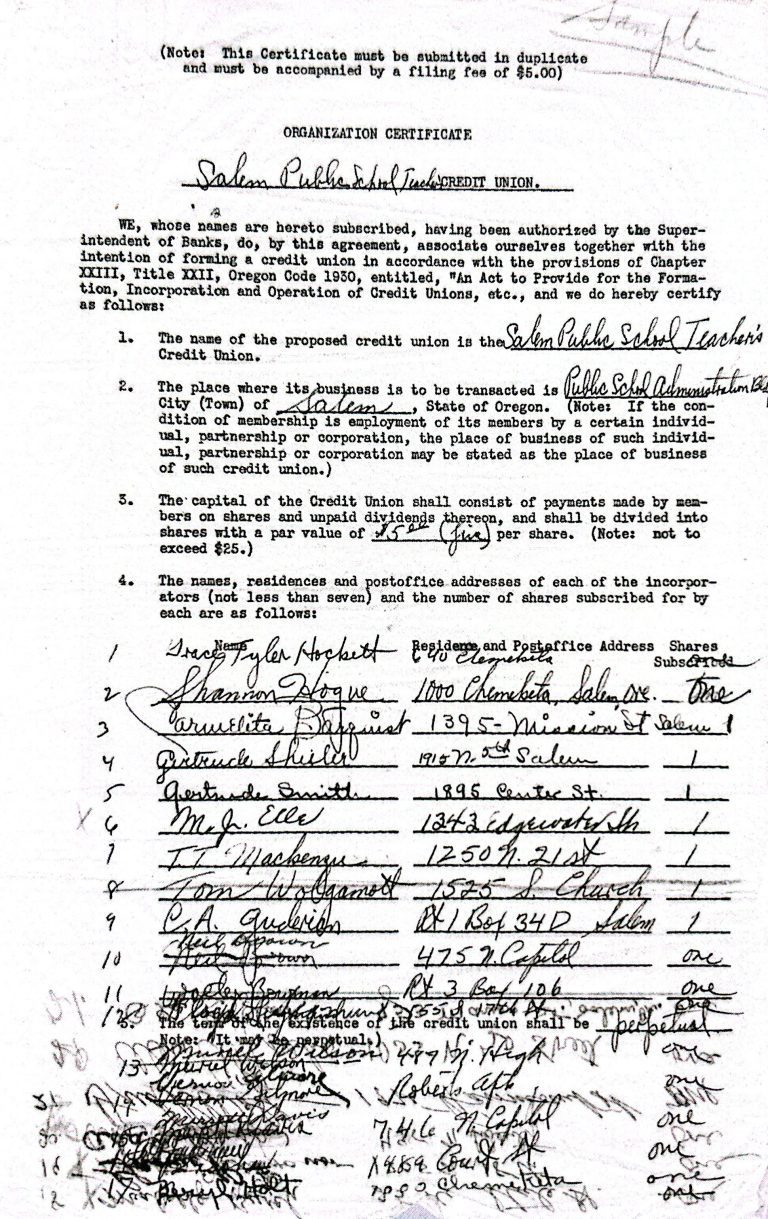 Sample
(Note: This Certificate must be submitted in duplicate
and must be accompanied by a filing fee of $5.00)
ORGANIZATION CERTIFICATE
Salem Public School Teacher CREDIT UNION.
WE, whose names are hereto subscribed, having been authorized by the Super-
intendent of Banks, do, by this agreement, associate ourselves together with the
intention of forming a credit union in accordance with the provisions of Chapter
XXIII, Title XXII, Oregon Code 1930, entitled, "An Act to Provide for the Forma-
tion, Incorporation and Operation of Credit Unions, etc., and we do hereby certify
as follows:
1. The name of the proposed credit union is the Salem Public School Teacher's
Credit Union.
2. The place where its business is to be transacted is Public School Administration
City (Town) of Salem, State of Oregon. (Note: If the con-
dition of membership is employment of its members by a certain individ-
ual, partnership or corporation, the place of business of such individ-
ual, partnership or corporation may be stated as the place of business
of such credit union.)
3. The capital of the Credit Union shall consist of payments made by mem-
bers on shares and unpaid dividends thereon, and shall be divided into
shares with a par value of (five) per share. (Note: not to
exceed $25.)
4. The names, residences and postoffice addresses of each of the incorpor-
ators (not less than seven) and the number of shares subscribed for by
each are as follows:
Name Residence and Postoffice Address Shares
Subscribed
1 Grace Tyler Hockett 640 Chemeketa
2 Shannon Hogue 1000 Chemeketa, Salem, Ore. One
3 Carmelita 1395 - Mission St Salem 1
4 Gertrude 1915 N. 5th Salem 1
5 Gertrude Smith 1895 Center St. 1
6 M. J. Elle 1343 Edgewater 1
7 T T Mackenzie 1250 N. 21st 1
8 Tom Wolgamott 1525 S. Church 1
9 C.A. Guderian Rt 1 Box 34D Salem 1
10 475 N. Capitol one
11 Bowman Rt 3 Box 106 one
12 one
5. The term of the existence of the credit union shall be perpetual
Note: (It may be perpetual.)
13 Muriel Wilson 477 N. High one
14 Vernon Gilmore Roberts Apt. one
746 N. Capitol one
Court St one
17 Beryl Holt Chemeketa one